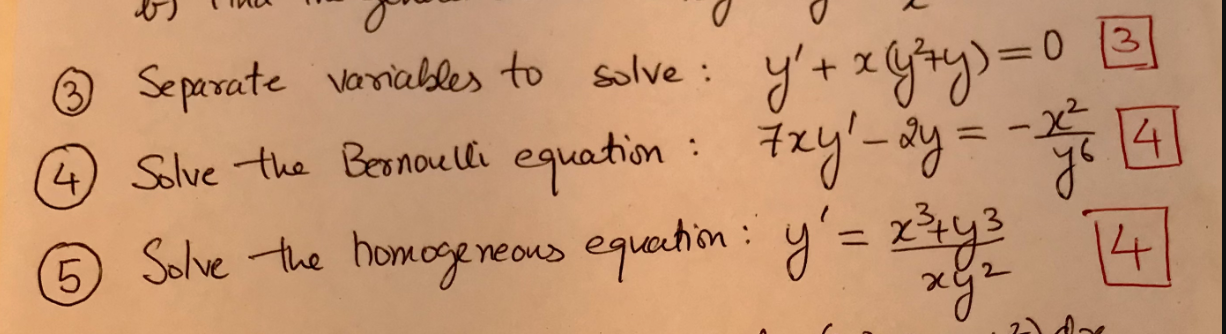 b) Find the
③ Separate variables to solve : y' + x(y²+y) = 0 3
④ Solve the Bernoulli equation : 7xy' - 2y = -x²/y⁶ 4
⑤ Solve the homogeneous equation : y' = x³+y³/xy² 4